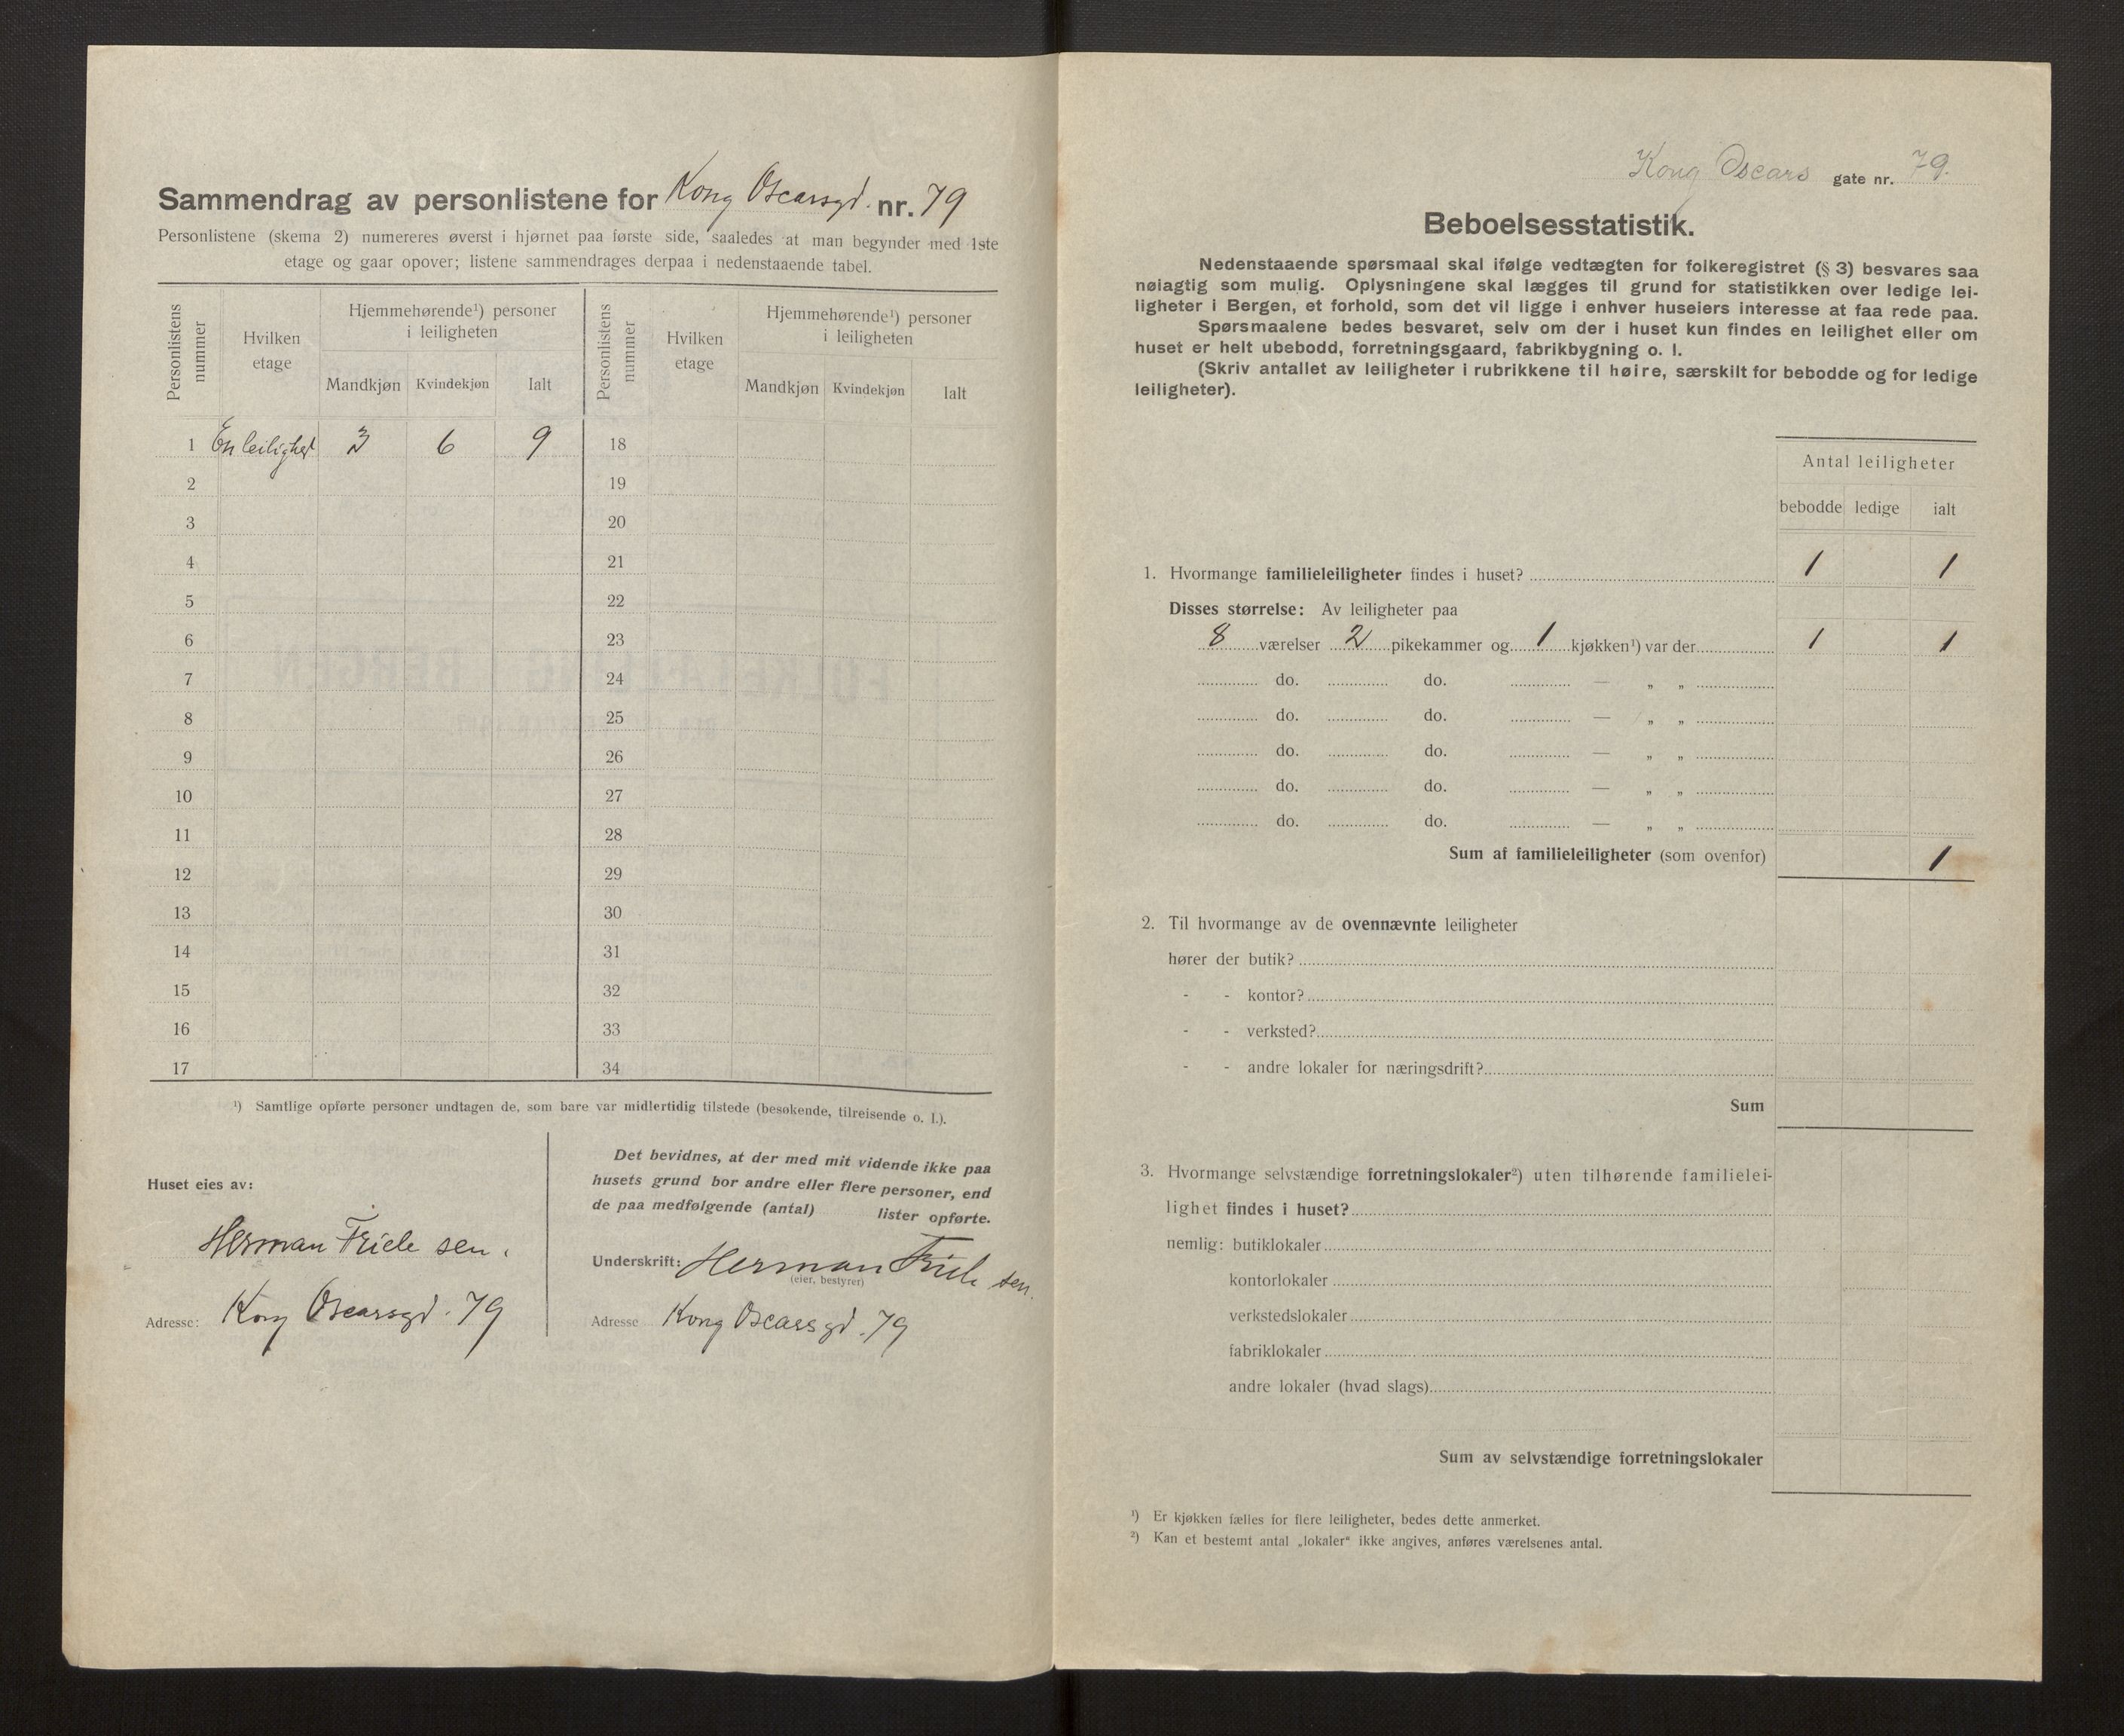 Sammendrag av personlistene for Kong Oscarsgd. nr. 79
Personlistene (skema 2) numereres øverst i hjørnet paa første side, saaledes at man begynder med 1ste
etage og gaar opover; listene sammendrages derpaa i nedenstaaende tabel.
Personlistens nummer
Hvilken etage
Hjemmehørende¹) personer i leiligheten
Mandkjøn Kvindekjøn Ialt
Personlistens nummer
Hvilken etage
Hjemmehørende¹) personer i leiligheten
Mandkjøn Kvindekjøn Ialt
1 En leilighet 3 6 9 18
2 19
3 20
4 21
5 22
6 23
7 24
8 25
9 26
10 27
11 28
12 29
13 30
14 31
15 32
16 33
17 34
¹) Samtlige opførte personer undtagen de, som bare var midlertidig tilstede (besøkende, tilreisende o. l.).
Huset eies av:
Herman Friele sen.
Adresse: Kong Oscarsgd. 79
Det bevidnes, at der med mit vidende ikke paa
husets grund bor andre eller flere personer, end
de paa medfølgende (antal) lister opførte.
Underskrift: Herman Friele sen.
(eier, bestyrer)
Adresse Kong Oscarsgd. 79
Kong Oscars gate nr. 79.
Beboelsesstatistik.
Nedenstaaende spørsmaal skal ifølge vedtægten for folkeregistret (§ 3) besvares saa
nøiagtig som mulig. Oplysningene skal lægges til grund for statistikken over ledige lei-
ligheter i Bergen, et forhold, som det vil ligge i enhver huseiers interesse at faa rede paa.
Spørsmaalene bedes besvaret, selv om der i huset kun findes en leilighet eller om
huset er helt ubebodd, forretningsgaard, fabrikbygning o. l.
(Skriv antallet av leiligheter i rubrikkene til høire, særskilt for bebodde og for ledige
leiligheter).
Antal leiligheter
bebodde ledige ialt
1. Hvormange familieleiligheter findes i huset? 1 1
Disses størrelse: Av leiligheter paa
8 værelser 2 pikekammer og 1 kjøkken¹) var der 1 1
do. do. — „ „
do. do. — „ „
do. do. — „ „
do. do. — „ „
do. do. — „ „
Sum af familieleiligheter (som ovenfor) 1
2. Til hvormange av de ovennævnte leiligheter
hører der butik?
- - kontor?
- - verksted?
- - andre lokaler for næringsdrift?
Sum
3. Hvormange selvstændige forretningslokaler²) uten tilhørende familielei-
lighet findes i huset?
nemlig: butiklokaler
kontorlokaler
verkstedslokaler
fabriklokaler
andre lokaler (hvad slags)
Sum av selvstændige forretningslokaler
¹) Er kjøkken fælles for flere leiligheter, bedes dette anmerket.
²) Kan et bestemt antal „lokaler“ ikke angives, anføres værelsenes antal.